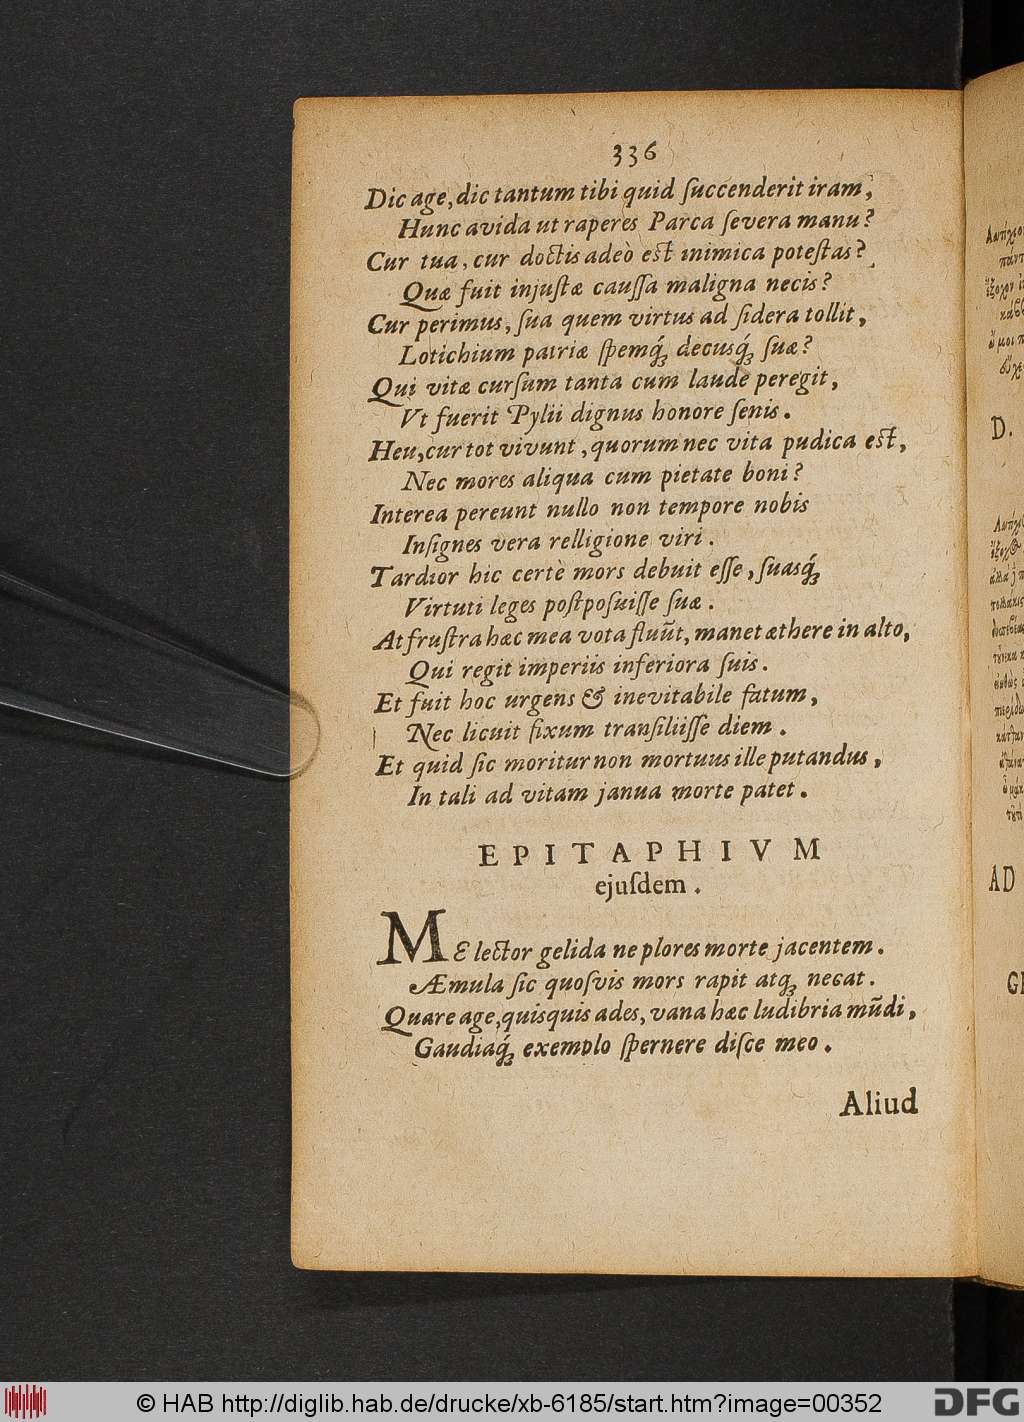 336
Dic age, dic tantum tibi quid ſuccenderit iram,
Hunc avida ut raperes Parca ſevera manu?
Cur tua, cur doctis adeò est inimica poteſtas?
Quæ fuit injuſtæ cauſſa maligna necis?
Cur perimus, ſua quem virtus ad ſidera tollit,
Lotichium patriæ ſpemq́; decusq́; ſuæ?
Qui vitæ curſum tanta cum laude peregit,
Vt fuerit Pylii dignus honore ſenis.
Heu, cur tot vivunt, quorum nec vita pudica est,
Nec mores aliqua cum pietate boni?
Interea pereunt nullo non tempore nobis
Inſignes vera relligione viri.
Tardior hic certè mors debuit eſſe, ſuasq́;
Virtuti leges poſtpoſuiſſe ſuæ.
At fruſtra hæc mea vota fluũt, manet æthere in alto,
Qui regit imperiis inferiora ſuis.
Et fuit hoc urgens & inevitabile fatum,
Nec licuit fixum tranſiliiſſe diem.
Et quid ſic moritur non mortuus ille putandus,
In tali ad vitam janua morte patet.
EPITAPHIVM
ejuſdem.
ME lector gelida ne plores morte jacentem.
Æmula ſic quoſvis mors rapit atq; necat.
Quare age, quisquis ades, vana hæc ludibria mũdi,
Gaudiaq́; exemplo ſpernere diſce meo.
Aliud
D.
AD
© HAB http://diglib.hab.de/drucke/xb-6185/start.htm?image=00352
DFG